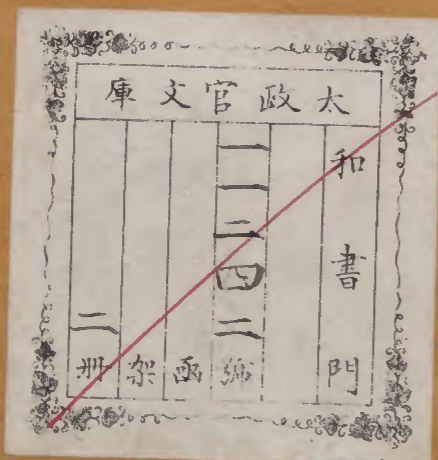 太政官文庫
和書門
一一二四二號
函
架
二冊